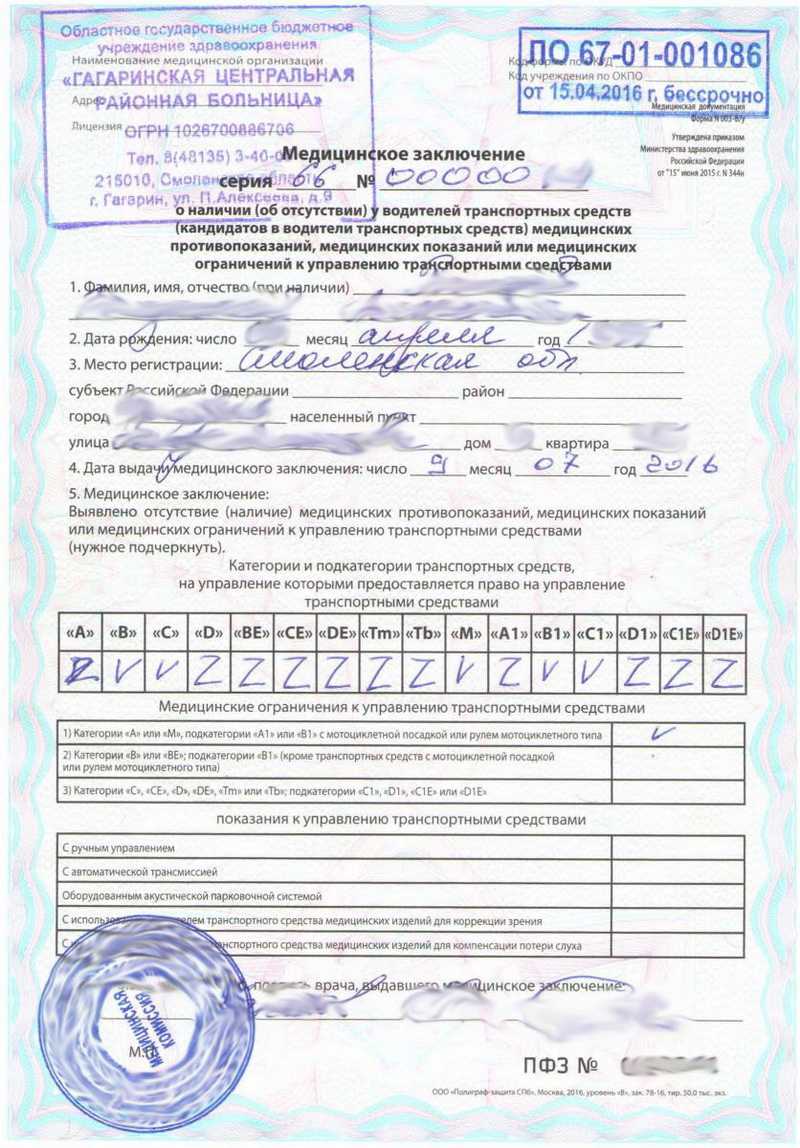 Областное государственное бюджетное
учреждение здравоохранения
Наименование медицинской организации
«ГАГАРИНСКАЯ ЦЕНТРАЛЬНАЯ
РАЙОННАЯ БОЛЬНИЦА»
Адрес
Лицензия
ОГРН 1026700886706
Тел. 8(48135) 3-40-0
215010, Смоленская область
г. Гагарин, ул. П.Алексеева, д.9
Код формы по ОКУД
ЛО 67-01-001086
Код учреждения по ОКПО
от 15.04.2016 г, бессрочно
Медицинская документация
Форма N 003-В/у
Утверждена приказом
Министерства здравоохранения
Российской Федерации
от "15" июня 2015 г. N 344н
Медицинское заключение
серия 66 № 00000
о наличии (об отсутствии) у водителей транспортных средств
(кандидатов в водители транспортных средств) медицинских
противопоказаний, медицинских показаний или медицинских
ограничений к управлению транспортными средствами
1. Фамилия, имя, отчество (при наличии)
2. Дата рождения: число месяц апреля год 1
3. Место регистрации: Смоленская обл.
субъект Российской Федерации район
город населенный пункт
улица дом квартира
4. Дата выдачи медицинского заключения: число 9 месяц 07 год 2016
5. Медицинское заключение:
Выявлено отсутствие (наличие) медицинских противопоказаний, медицинских показаний
или медицинских ограничений к управлению транспортными средствами
(нужное подчеркнуть).
Категории и подкатегории транспортных средств,
на управление которыми предоставляется право на управление
транспортными средствами
«A» «B» «C» «D» «BE» «CE» «DE» «Tm» «Tb» «M» «A1» «B1» «C1» «D1» «C1E» «D1E»
Z V V Z Z Z Z Z Z V Z V V Z Z Z
Медицинские ограничения к управлению транспортными средствами
1) Категории «A» или «M», подкатегории «A1» или «B1» с мотоциклетной посадкой или рулем мотоциклетного типа V
2) Категории «B» или «BE»; подкатегории «B1» (кроме транспортных средств с мотоциклетной посадкой
или рулем мотоциклетного типа)
3) Категории «C», «CE», «D», «DE», «Tm» или «Tb»; подкатегории «C1», «D1», «C1E» или «D1E»
показания к управлению транспортными средствами
С ручным управлением
С автоматической трансмиссией
Оборудованным акустической парковочной системой
С использованием водителем транспортного средства медицинских изделий для коррекции зрения
транспортного средства медицинских изделий для компенсации потери слуха
врача, выдавшего медицинское заключение:
МЕДИЦИНСКАЯ
КОМИССИЯ
М.П.
ПФЗ №
ООО «Полиграф-защита СПб», Москва, 2016, уровень «В», зак. 78-16, тир. 50,0 тыс. экз.